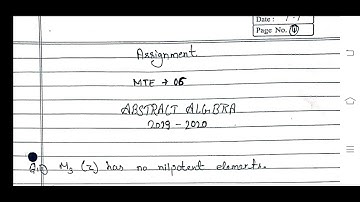 Date : / - /
Page No. 1
Assignment
MTE → 06
ABSTRACT ALGBRA
2019 - 2020
Q.1i) M3 (Z) has no nilpotent elements.